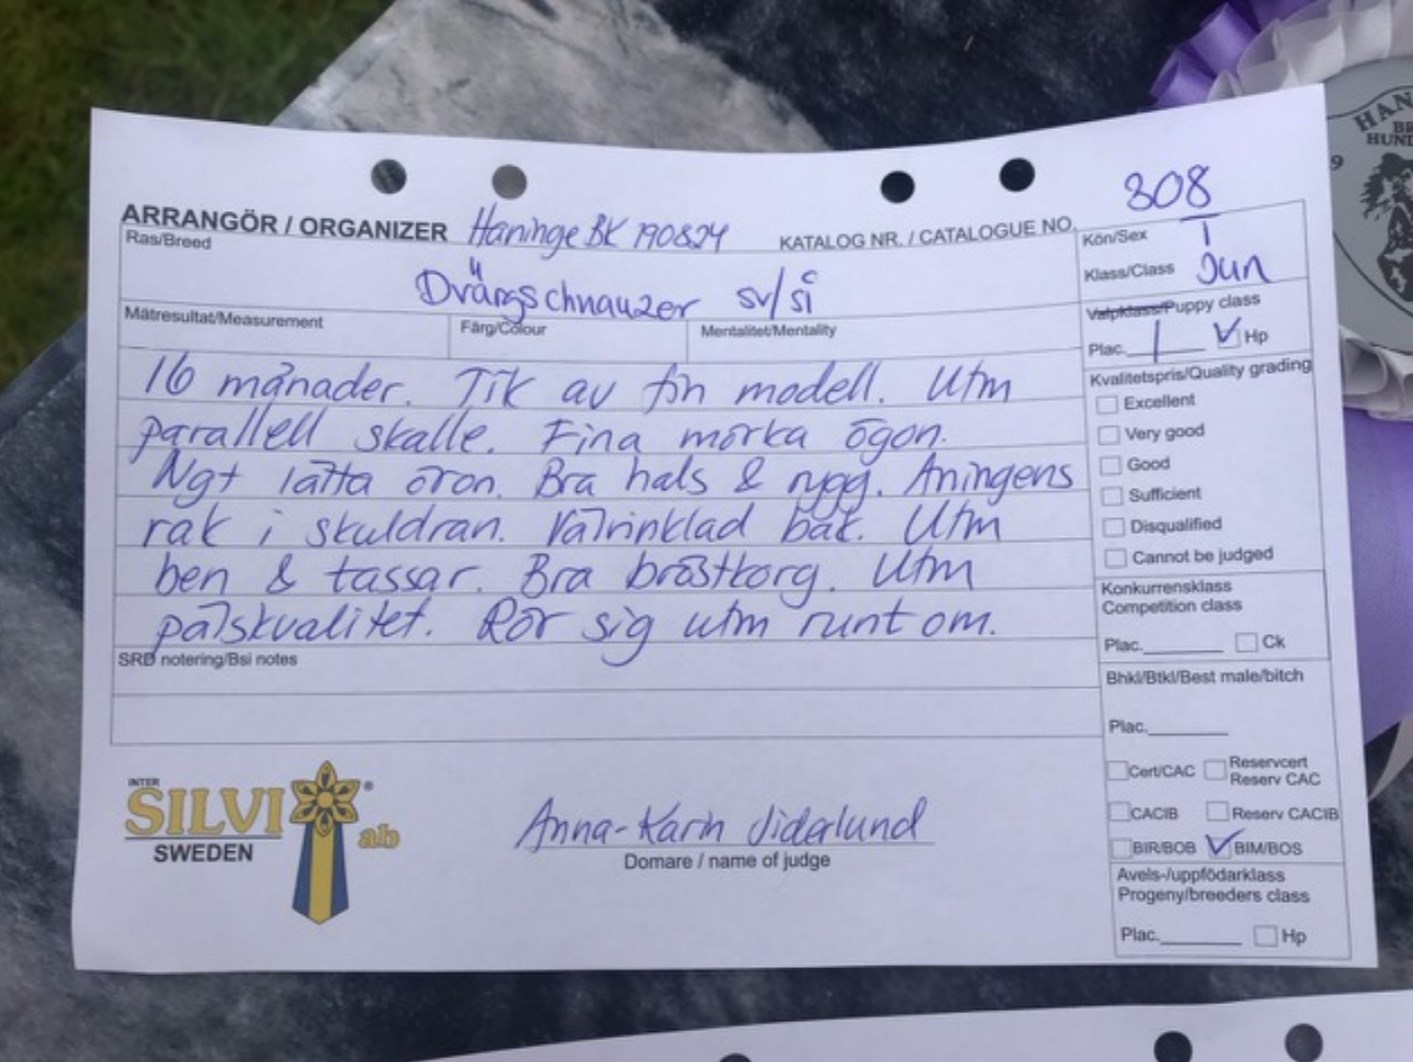 308
ARRANGÖR / ORGANIZER Haninge BK 190824 KATALOG NR. / CATALOGUE NO.
Ras/Breed
Dvärgschnauzer sv/si
Kön/Sex T
Klass/Class Jun
Mätresultat/Measurement Färg/Colour Mentalitet/Mentality
Valpklass/Puppy class
Plac. 1 Hp
16 månader. Tik av fin modell. Utm
parallell skalle. Fina mörka ögon.
Ngt lätta öron. Bra hals & rygg. Aningens
rak i skuldran. Välvinklad bak. Utm
ben & tassar. Bra bröstkorg. Utm
pälskvalitet. Rör sig utm runt om.
SRD notering/Bsi notes
Kvalitetspris/Quality grading
Excellent
Very good
Good
Sufficient
Disqualified
Cannot be judged
Konkurrensklass
Competition class
Plac. Ck
Bhkl/Btkl/Best male/bitch
Plac.
Cert/CAC Reservcert
Reserv CAC
CACIB Reserv CACIB
BIR/BOB BIM/BOS
Avels-/uppfödarklass
Progeny/breeders class
Plac. Hp
INTER
SILVI ® ab
SWEDEN
Anna-Karin
Domare / name of judge
HAN
HUND
9